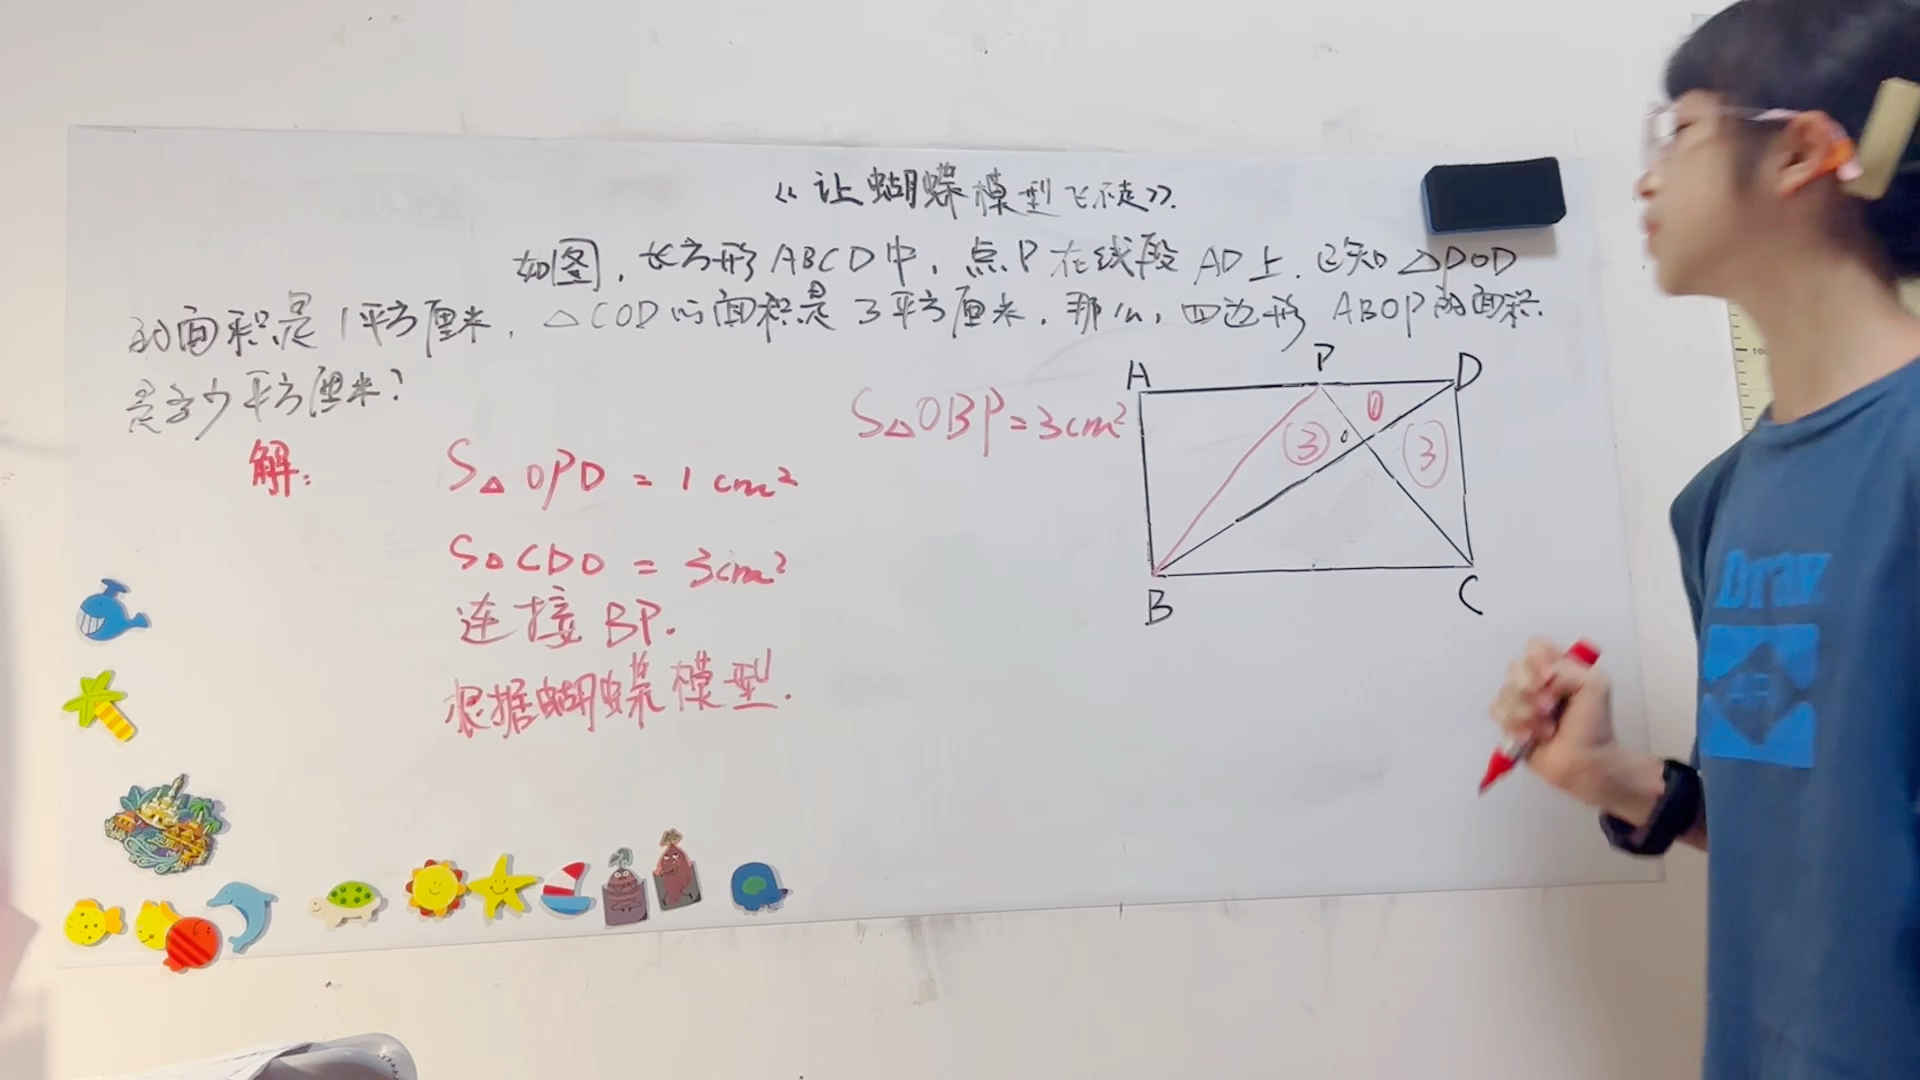 《让蝴蝶模型飞走》.
如图，长方形ABCD中，点P在线段AD上，已知△POD
的面积是1平方厘米，△COD的面积是3平方厘米，那么，四边形ABOP的面积
是多少平方厘米？
解：
S△OPD = 1cm²
S△CDO = 3cm²
连接BP.
根据蝴蝶模型.
S△OBP=3cm²
A P D
③ ① ③
O
B C
Draw